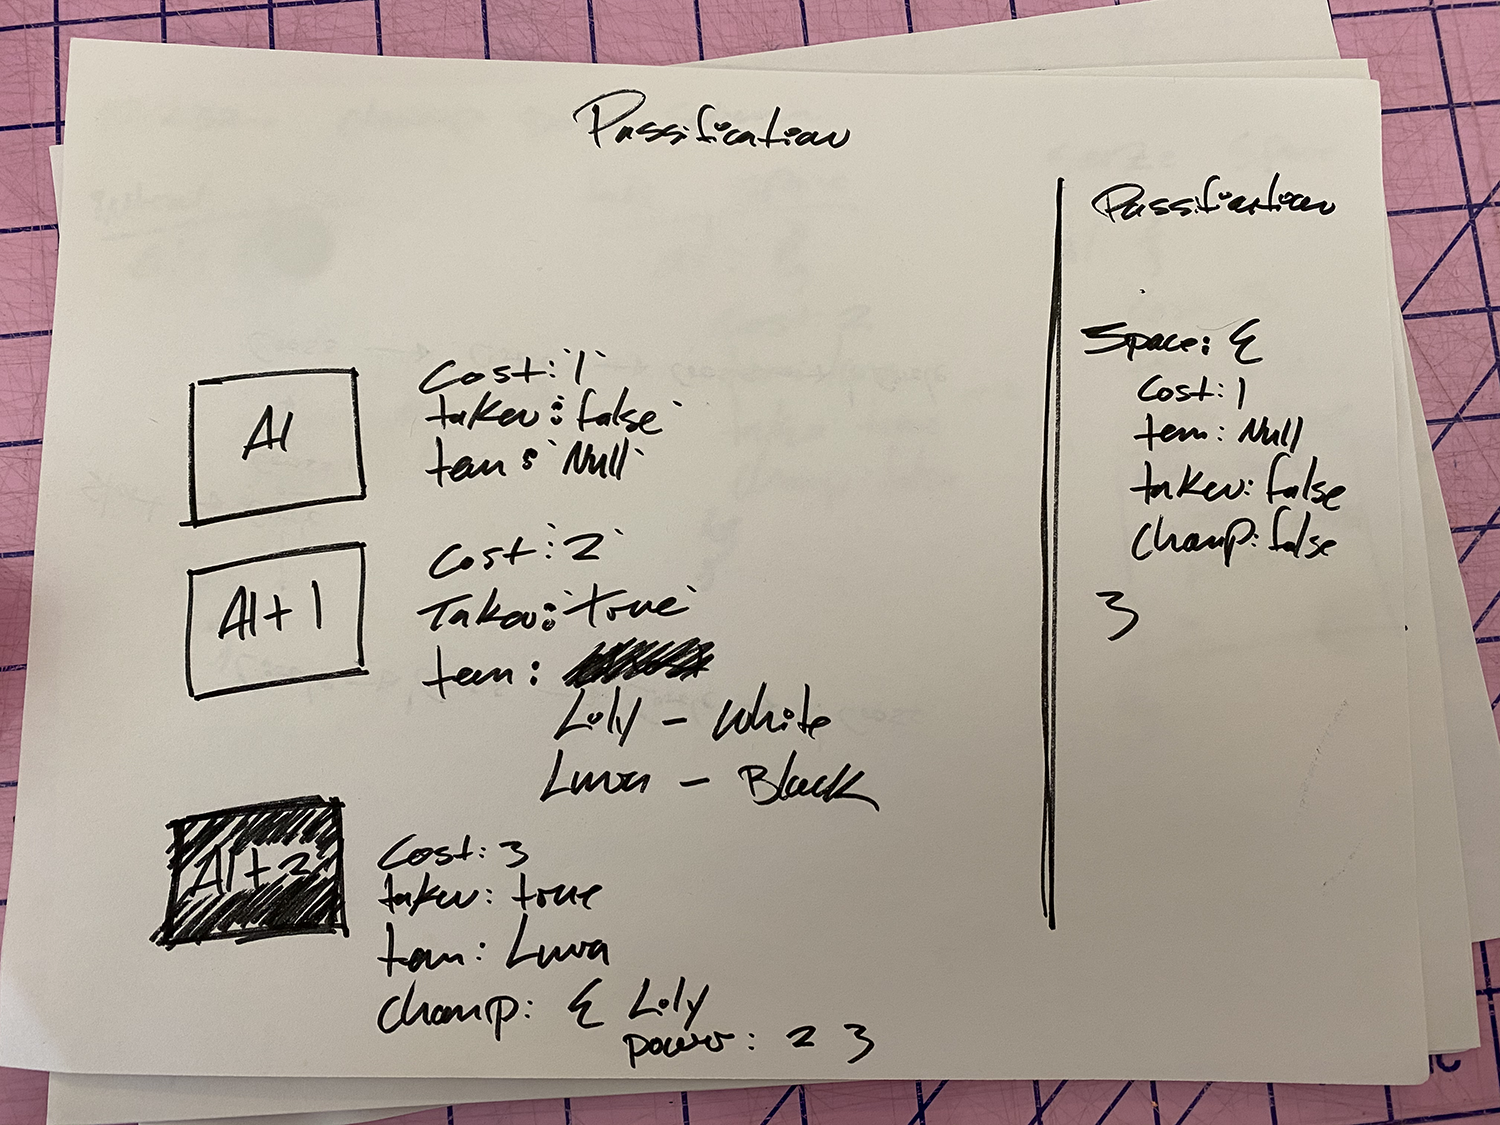 Passification
A1
Cost: `1`
taken: `false`
team: `Null`
A1+1
Cost: `2`
Taken: `true`
team:
Loly - White
Luva - Black
A1+2
Cost: 3
taken: true
team: Luva
champ: { Loly
power: 2 }
Passification
Space: {
Cost: 1
team: Null
taken: false
champ: false
}